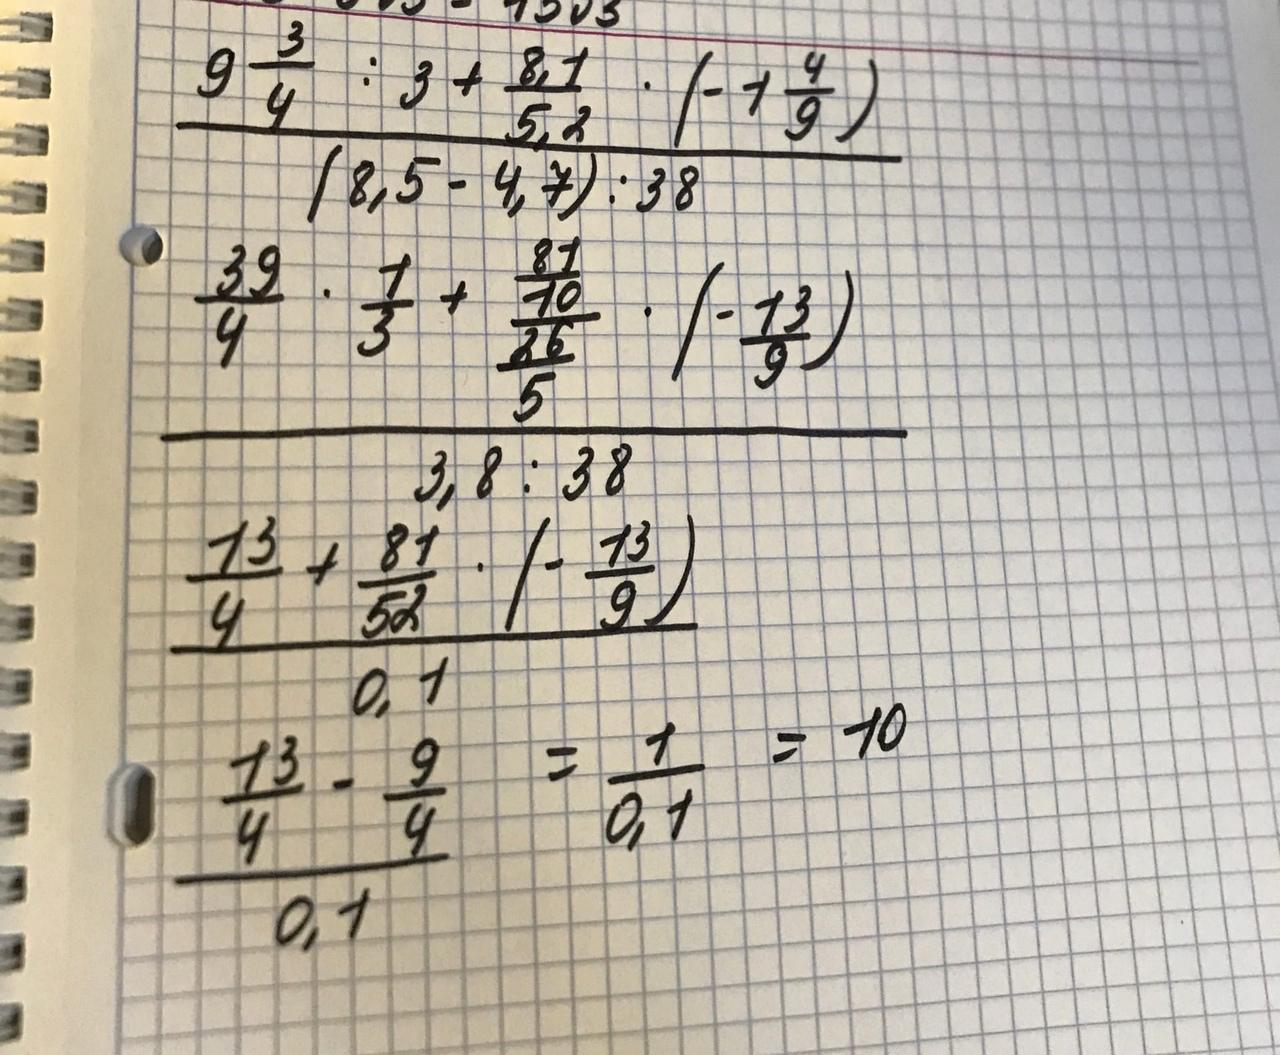 9 3/4 : 3 + 8,1/5,2 · (- 1 4/9)
(8,5 - 4,7) : 38
39/4 · 1/3 + 81/10/26/5 · (- 13/9)
3,8 : 38
13/4 + 81/52 · (- 13/9)
0,1
13/4 - 9/4 = 1/0,1 = 10
0,1